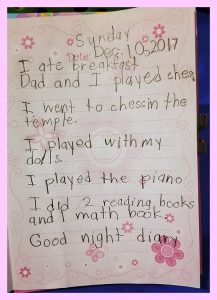 Sunday
Date: Dec. 10, 2017
I ate breakfast
Dad and I played chess
I went to chessin the
temple.
I played with my
dolls.
I played the piano
I did 2 reading books
and 1 math book.
Good night diary